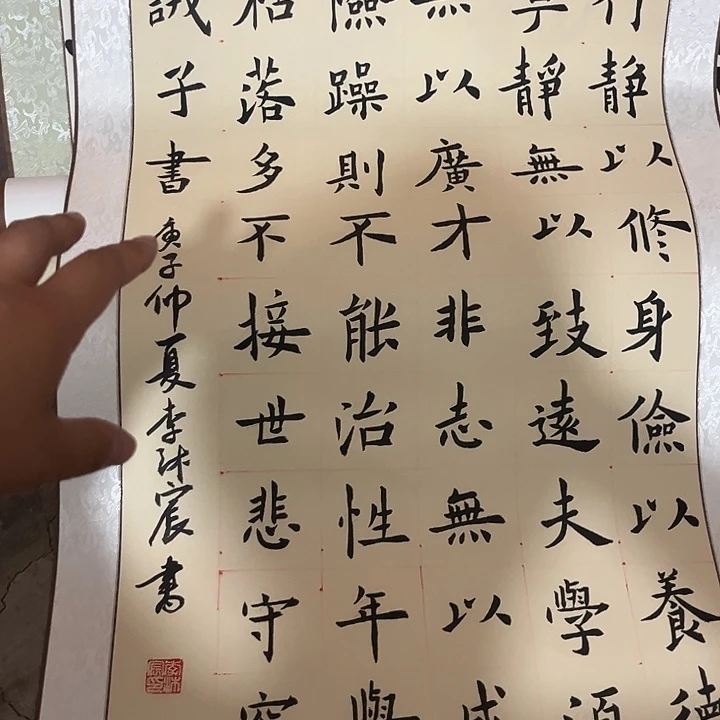 行靜以修身儉以養德
寧靜無以致遠夫學須
無以廣才非志無以成
險躁則不能治性年與
枯落多不接世悲守窮
誡子書庚子仲夏李沐宸書
李沐宸印